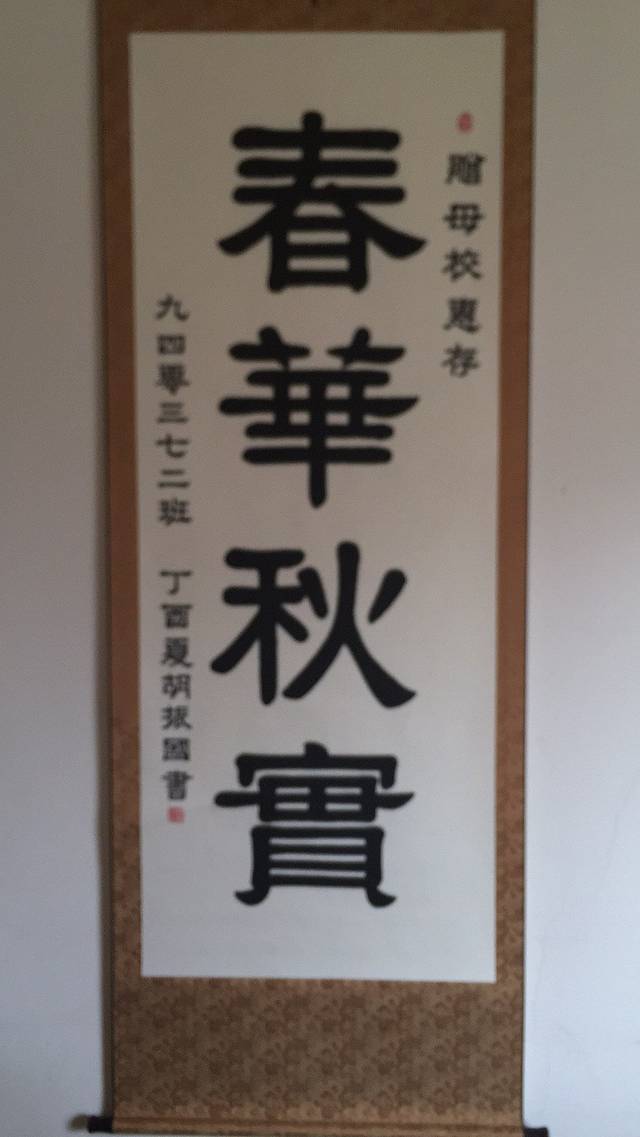 贈母校惠存
春華秋實
九四零三七二班 丁酉夏胡振國書